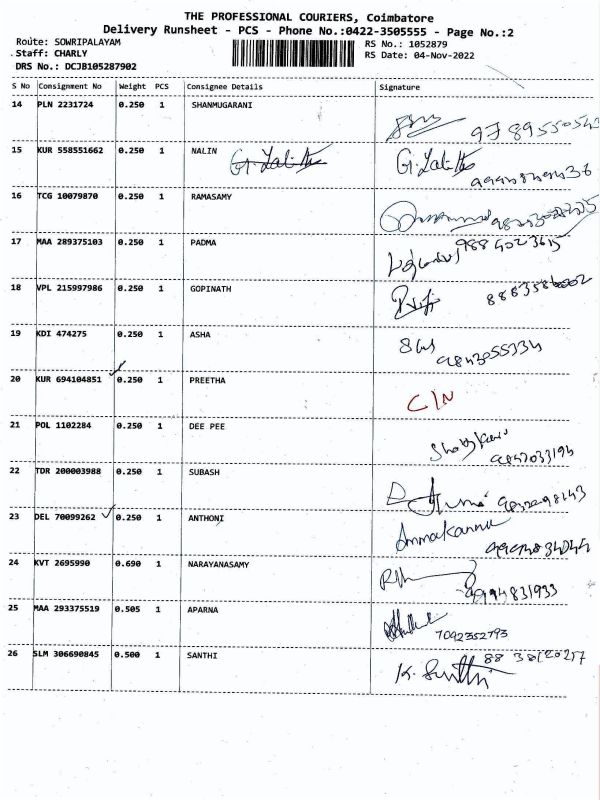 THE PROFESSIONAL COURIERS, Coimbatore
Delivery Runsheet - PCS - Phone No.:0422-3505555 - Page No.:2
Route: SOWRIPALAYAM
Staff: CHARLY
DRS No.: DCJB105287902
RS No.: 1052879
RS Date: 04-Nov-2022
S No Consignment No Weight PCS Consignee Details Signature
14 PLN 2231724 0.250 1 SHANMUGARANI
15 KUR 558551662 0.250 1 NALIN
16 TCG 10079870 0.250 1 RAMASAMY
17 MAA 289375103 0.250 1 PADMA
18 VPL 215997986 0.250 1 GOPINATH
19 KDI 474275 0.250 1 ASHA
9843055334
20 KUR 694104851 0.250 1 PREETHA
C/N
21 POL 1102284 0.250 1 DEE PEE
9842033194
22 TDR 200003988 0.250 1 SUBASH
23 DEL 70099262 0.250 1 ANTHONI
Ammakannu
24 KVT 2695990 0.690 1 NARAYANASAMY
9994831933
25 MAA 293375519 0.505 1 APARNA
7092352793
26 SLM 306690845 0.500 1 SANTHI
K. Santhi